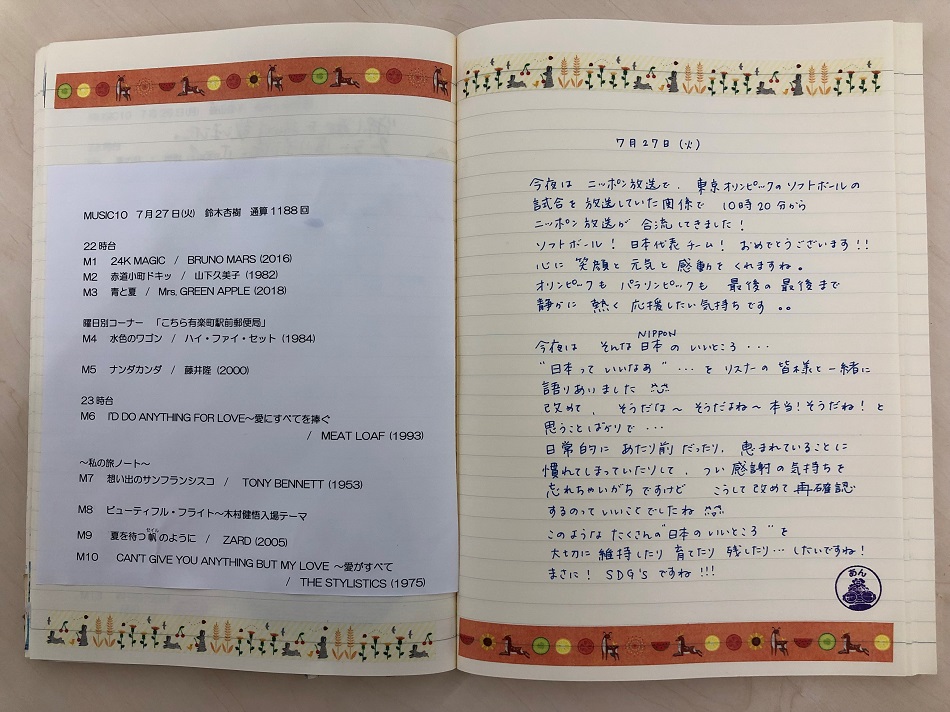 MUSIC10 7月27日(火) 鈴木杏樹 通算1188回
22時台
M1 24K MAGIC / BRUNO MARS (2016)
M2 赤道小町ドキッ / 山下久美子 (1982)
M3 青と夏 / Mrs. GREEN APPLE (2018)
曜日別コーナー 「こちら有楽町駅前郵便局」
M4 水色のワゴン / ハイ・ファイ・セット (1984)
M5 ナンダカンダ / 藤井隆 (2000)
23時台
M6 I'D DO ANYTHING FOR LOVE～愛にすべてを捧ぐ
/ MEAT LOAF (1993)
～私の旅ノート～
M7 想い出のサンフランシスコ / TONY BENNETT (1953)
M8 ビューティフル・フライト～木村健悟入場テーマ
セイル
M9 夏を待つ帆のように / ZARD (2005)
M10 CAN'T GIVE YOU ANYTHING BUT MY LOVE ～愛がすべて
/ THE STYLISTICS (1975)
7月27日(火)
今夜は ニッポン放送で、東京オリンピックのソフトボールの
試合を放送していた関係で 10時20分から
ニッポン放送が 合流してきました!
ソフトボール! 日本代表チーム! おめでとうございます!!
心に 笑顔と元気と感動をくれますね。
オリンピックも パラリンピックも 最後の最後まで
静かに 熱く 応援したい気持ちです。。
NIPPON
今夜は そんな日本のいいところ・・・
"日本っていいなぁ"・・・と リスナーの皆様と一緒に
語りあいました
改めて、そうだな～そうだよね～本当!そうだね!と
思うことばかりで・・・
日常的に あたり前だったり、恵まれていることに
慣れてしまっていたりして、つい感謝の気持ちを
忘れちゃいがちですけど こうして改めて再確認
するのっていいことでしたね
このような たくさんの"日本のいいところ"を
大切に維持したり 育てたり 残したり…したいですね!
まさに! SDG'sですね!!!
あん